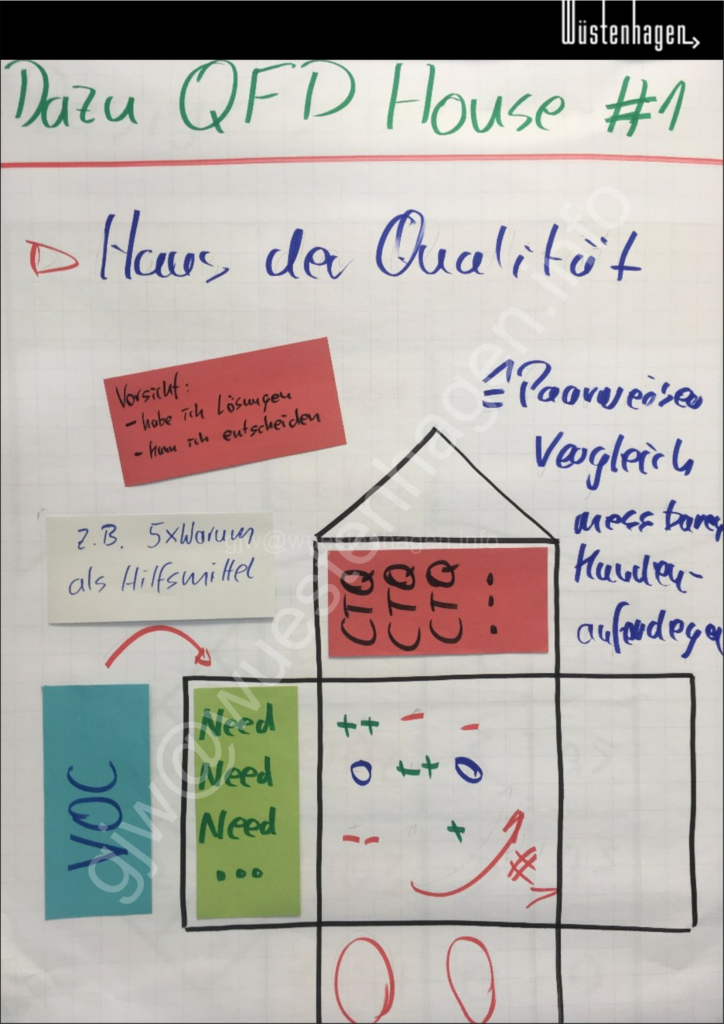 Wüstenhagen
Dazu QFD House #1
Haus der Qualität
Vorsicht:
- habe ich Lösungen
- kann ich entscheiden
≙ Paarweiser
Vergleich
messbarer
Kunden-
z.B. 5xWarum
als Hilfsmittel
CTQ
CTQ
CTQ
...
VOC
Need
Need
Need
...
++ - -
0 ++ 0
-- +
#1
gjw@wuestenhagen.info
gjw@wuestenhagen.info